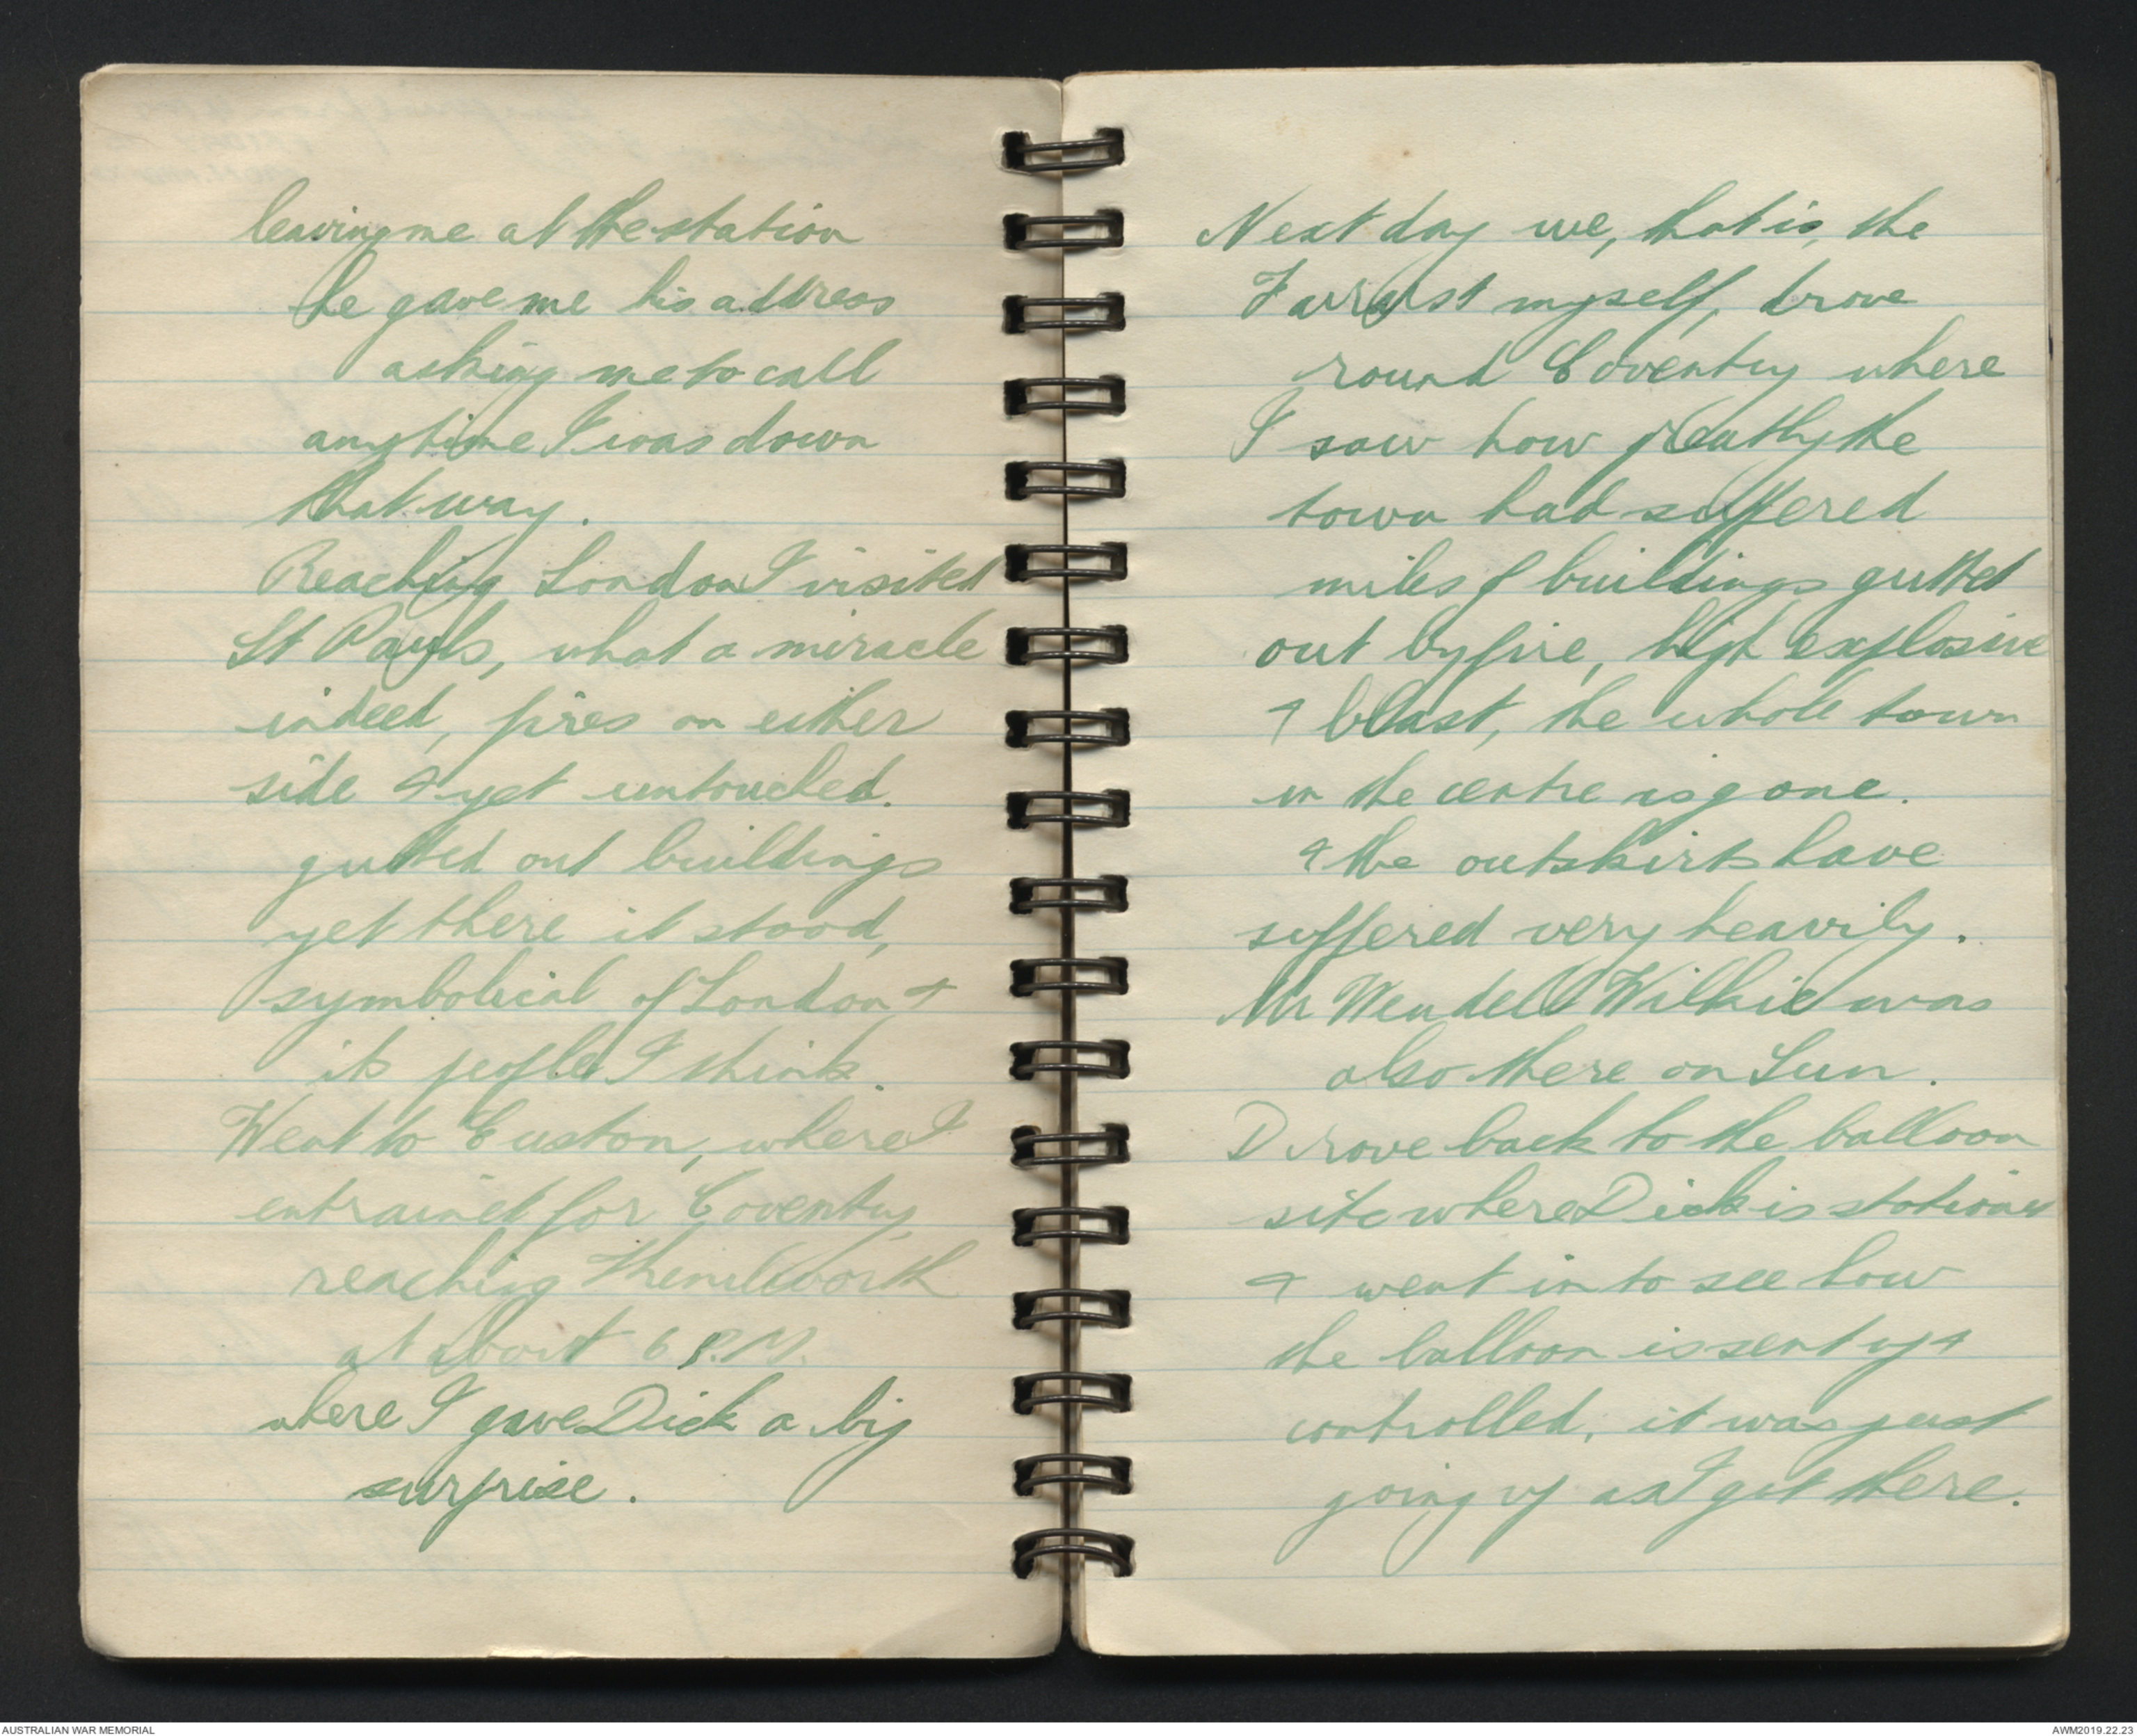 leaving me at the station
he gave me his address
asking me to call
anytime I was down
that way.
Reaching London I visited
St Pauls, what a miracle
indeed, fires on either
side & yet untouched.
gutted out buildings
yet there it stood,
symbolical of London &
its people I think.
Went to Euston, where I
entrained for Coventry,
reaching
at about 6 P.M.
where I gave Dick a big
surprise.
Next day we, that is, the
myself, drove
round Coventry where
I saw how greatly the
town had suffered
miles of buildings gutted
out by fire, high explosive
& blast, the whole town
in the centre is gone.
& the outskirts have
suffered very heavily.
Mr Wendell Wilkie was
also there on Sun.
Drove back to the balloon
site where Dick is stationed
& went in to see how
the balloon is sent up &
controlled, it was just
going up as I got there.
AUSTRALIAN WAR MEMORIAL
AWM2019.22.23